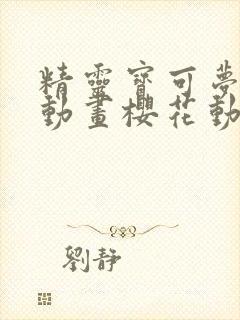 精靈寶可夢
動畫櫻花動
劉靜